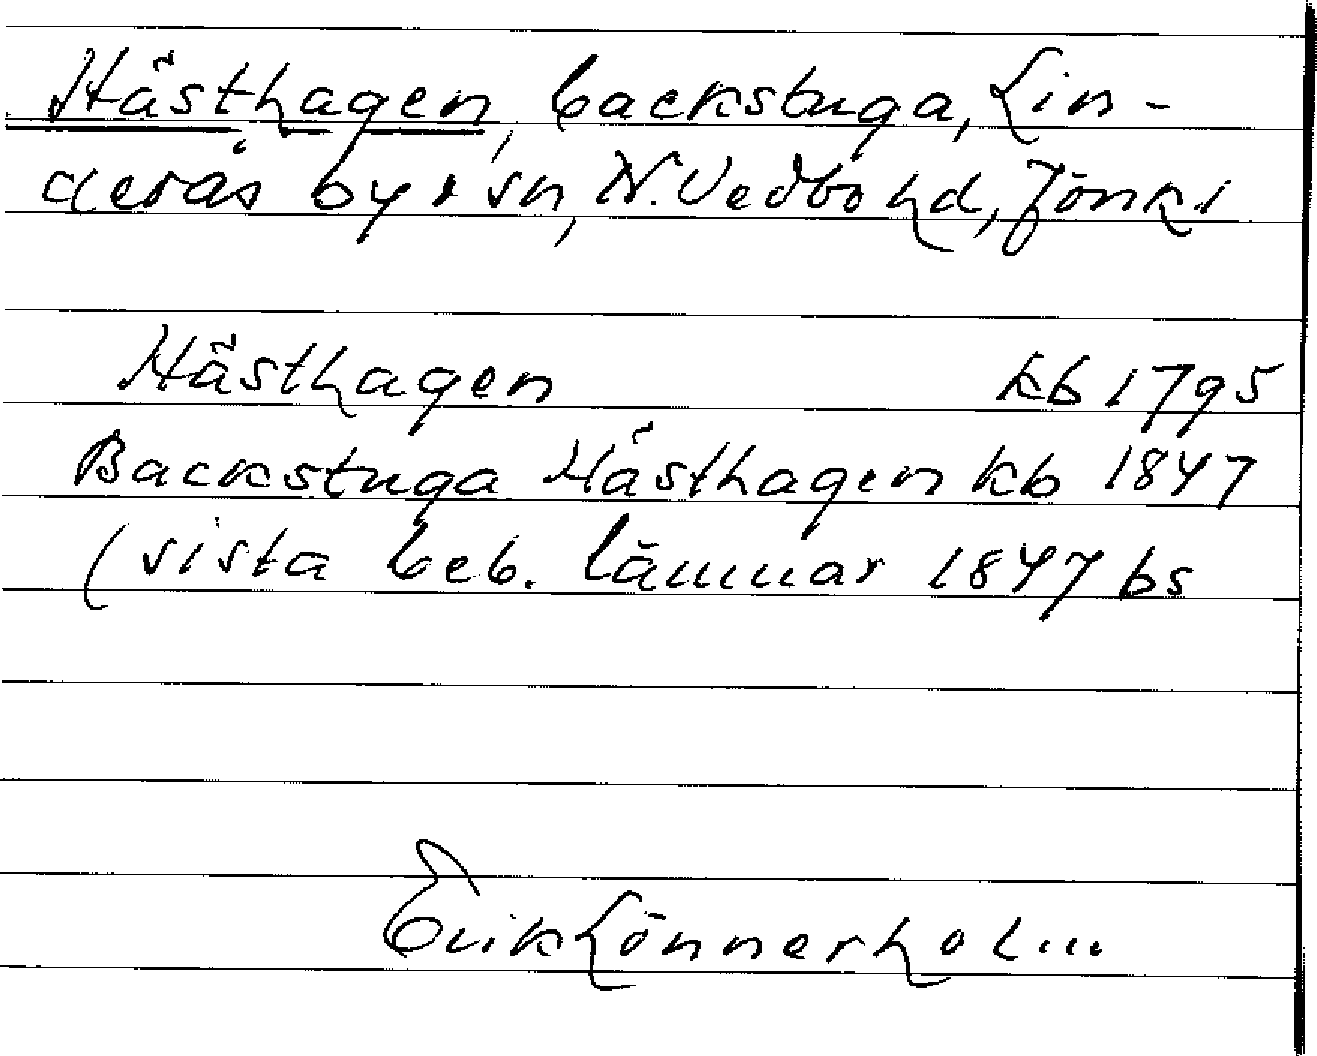 Hästhagen, backstuga, Lin-
derås by o sn, N. Vedbo hd, Jönk l
Hästhagen kb 1795
Backstuga Hästhagen kb 1847
(sista beb. lämnar 1847 bs
Erik Lönnerholm